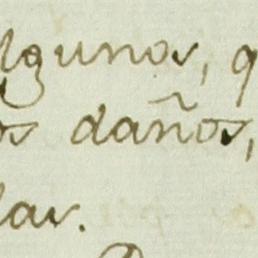 algunos, q
os daños,
lar.